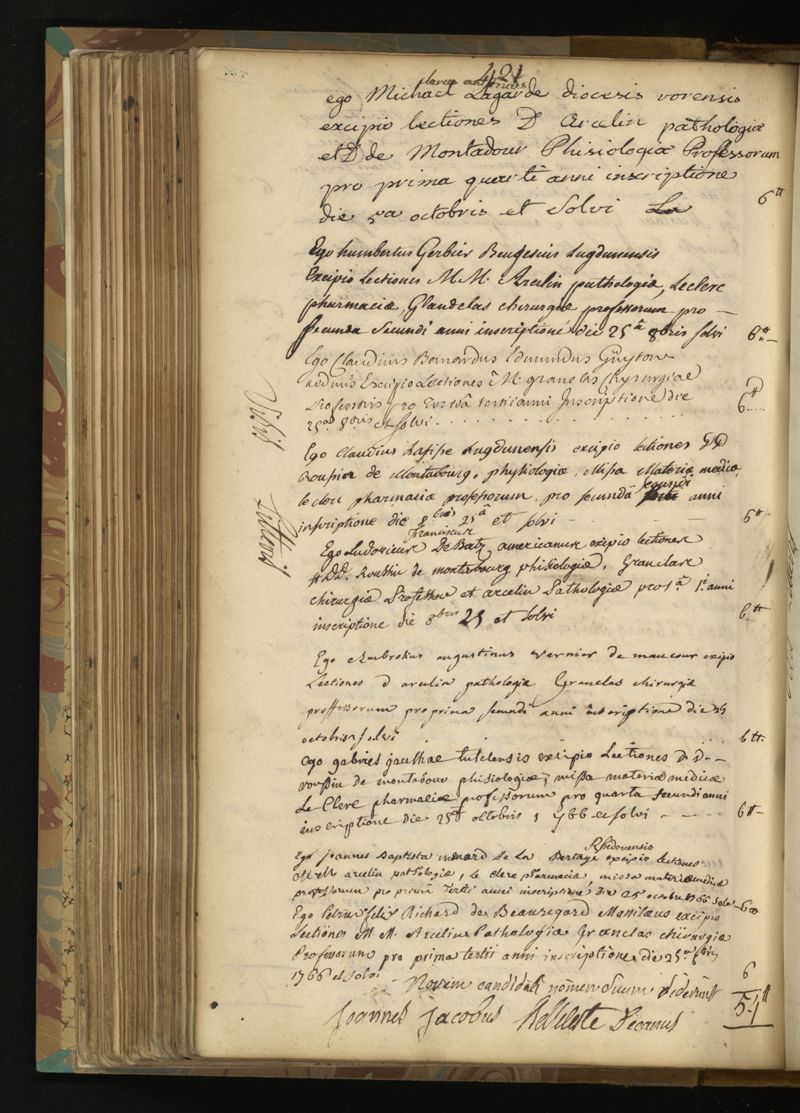 421
ego Michael Lagarde diocesis vorensis
excipio lectiones D Arcelin pathologiæ
et D de Montabour Phisiologiæ Professorum
pro prima quarti anni inscriptione
die 5a octobris et Solvi 6tt
Ego humbertus Gerbier Lugdunensis
Excipio Lectiones M.M. Arcelin pathologiæ, Leclerc
pharmaciæ, Glandelas chirurgiæ professorum pro
secunda Secundi anni inscriptione die 25â 8bris solvi 6tt
Ego Claudius Bernardus Edmundus Guytow
Excipio Lectiones a M. granclas Chyrurgiæ
Professoris pro tertii anni Inscriptione die
25ao 8bris et solvi 6
Ego Claudius Lasisse Lugdunensis excipio lectiones DD
Roussin de Montabourg, physiologiæ, Missa Materiæ medicæ
leclerc pharmaciæ professorum, pro secundâ secundi anni
inscriptione die 8bris 25â et solvi 6tt
Franciscus
Ego Ludovicus De Batz americanus excipio lectiones
DD. Roussin de montabourg phisiologiæ, Granclas
chirurgiæ Professor et arcelin Pathologiæ pro 1.â 1.i anni
inscriptione die 8bris 25 et solvi 6tt
Vidit
Ego Ambrosius augustinus varnier de maucour excipio
Lectiones d arcelin pathologiæ Granclas chirurgiæ
professorum pro prima secundi anni inscriptione die 25
octobris solvi 6tt
Ego gabriel gaulhac tutelensis excipio Lectiones D.D.
roussin de montabour phisiologiæ, missa materiæ medicæ
Le Clerc pharmaciæ professorum pro quarta secundi anni
inscriptione die 25â octobris 1766 et solvi 6tt
Rhedonensis
Ego joannes Baptista menard de La excipio lectiones
M.M. arcelin pathologiæ, Le clerc pharmaciæ, missa materiæ medicæ
professorum pro primâ tertii anni inscriptione die 25 octobris 1766 solvi 6tt
Ego Petrus felix Richard de Beauregard Massilæus excipio
Lectiones M. M. Arcelin Pathologiæ Granclas chirurgiæ
Professorum pro prima tertii anni inscriptione die 25a 8bris
1766 et solvi 6
Novem candidati nomen suum dederunt 54tt
Joannes Jacobus Belleteste Decanus